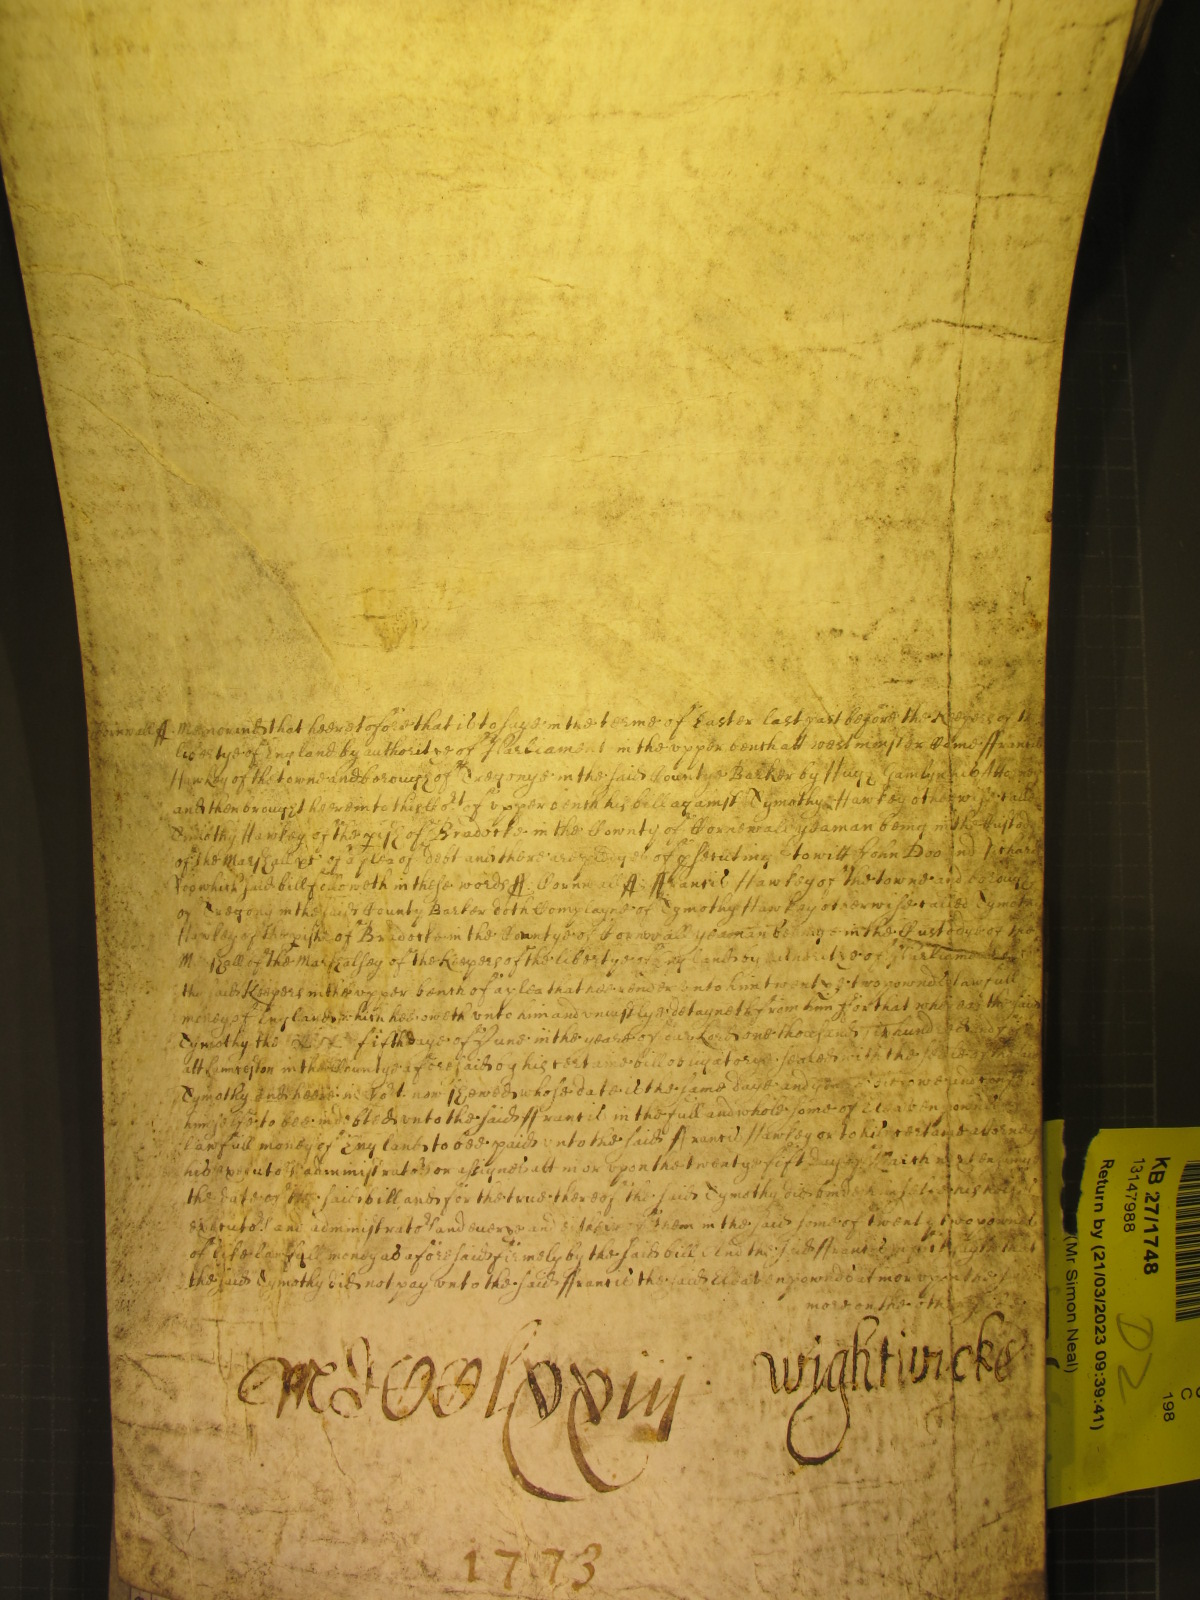 Cornwall ss Memorand that heeretofore that is to saye in the terme of Easter last past before the Keepers of the
libertye of England by authoritye of Parliament in the vpper bench att westminster Came ffrancis
Hawkey of the towne and borough of Tregonye in the said Countye Barker by Hugh his Attorney
and then brought heere into this Cort of vpper bench his bill against Tymothy Hawkey otherwise called
Tymothy Hawkey of the pish of Bradocke in the County of Cornewall yeaman being in the Custody
of the Marshall &c of a plea of debt and there are pledges of psecuting to witt John Doo and Richard
Roo which said bill followeth in these words ss Cornwall ss ffrancis Hawkey of the towne and borough
of Tregony in the said County Barker doth Complayne of Tymothy Hawkey otherwise called Tymothy
Hawkey of the pishe of Bradocke in the Countye of Cornwall yeaman beinge in the Custodye of the
Marshall of the Marshalsey of the Keepers of the libertye of England by authoritye of Parliament before
the said Keepers in the vpper bench of a plea that hee render vnto him twenty two pownds lawfull
money of England which hee oweth vnto him and vniustlye detayneth from him for that whereas the said
Tymothy the fift daye of June in the yeare of our Lord one thousand six hundred and
att in the Countye aforesaid by his certaine bill obligatorye sealed with the seale of the said
Tymothy and heere in Cort now shewed whose date is the same daye and yeare
himselfe to bee indebted vnto the said ffrancis in the full and whole some of eleaven pownds
lawfull money of England to bee paid vnto the said ffrancis Hawkey or to his certaine attorney
his executors administrators or assignes att in or vpon the twenty fift day of March next ensuing
the date of the said bill and for the true thereof the said Tymothy did binde himselfe his heires
executors and administrators and euery and either of them in the said some of twenty two pownds
of like lawfull money as aforesaid firmely by the said bill And the said ffrancis in fact sayth that
the said Tymothy did not pay vnto the said ffrancis the said eleaven pownds att in or vpon the
more on the other side
MDCClxxiii wightwicke
1773
KB 27/1748
13147988
Return by (21/03/2023 09:39:41)
(Mr Simon Neal)
D2
C
198